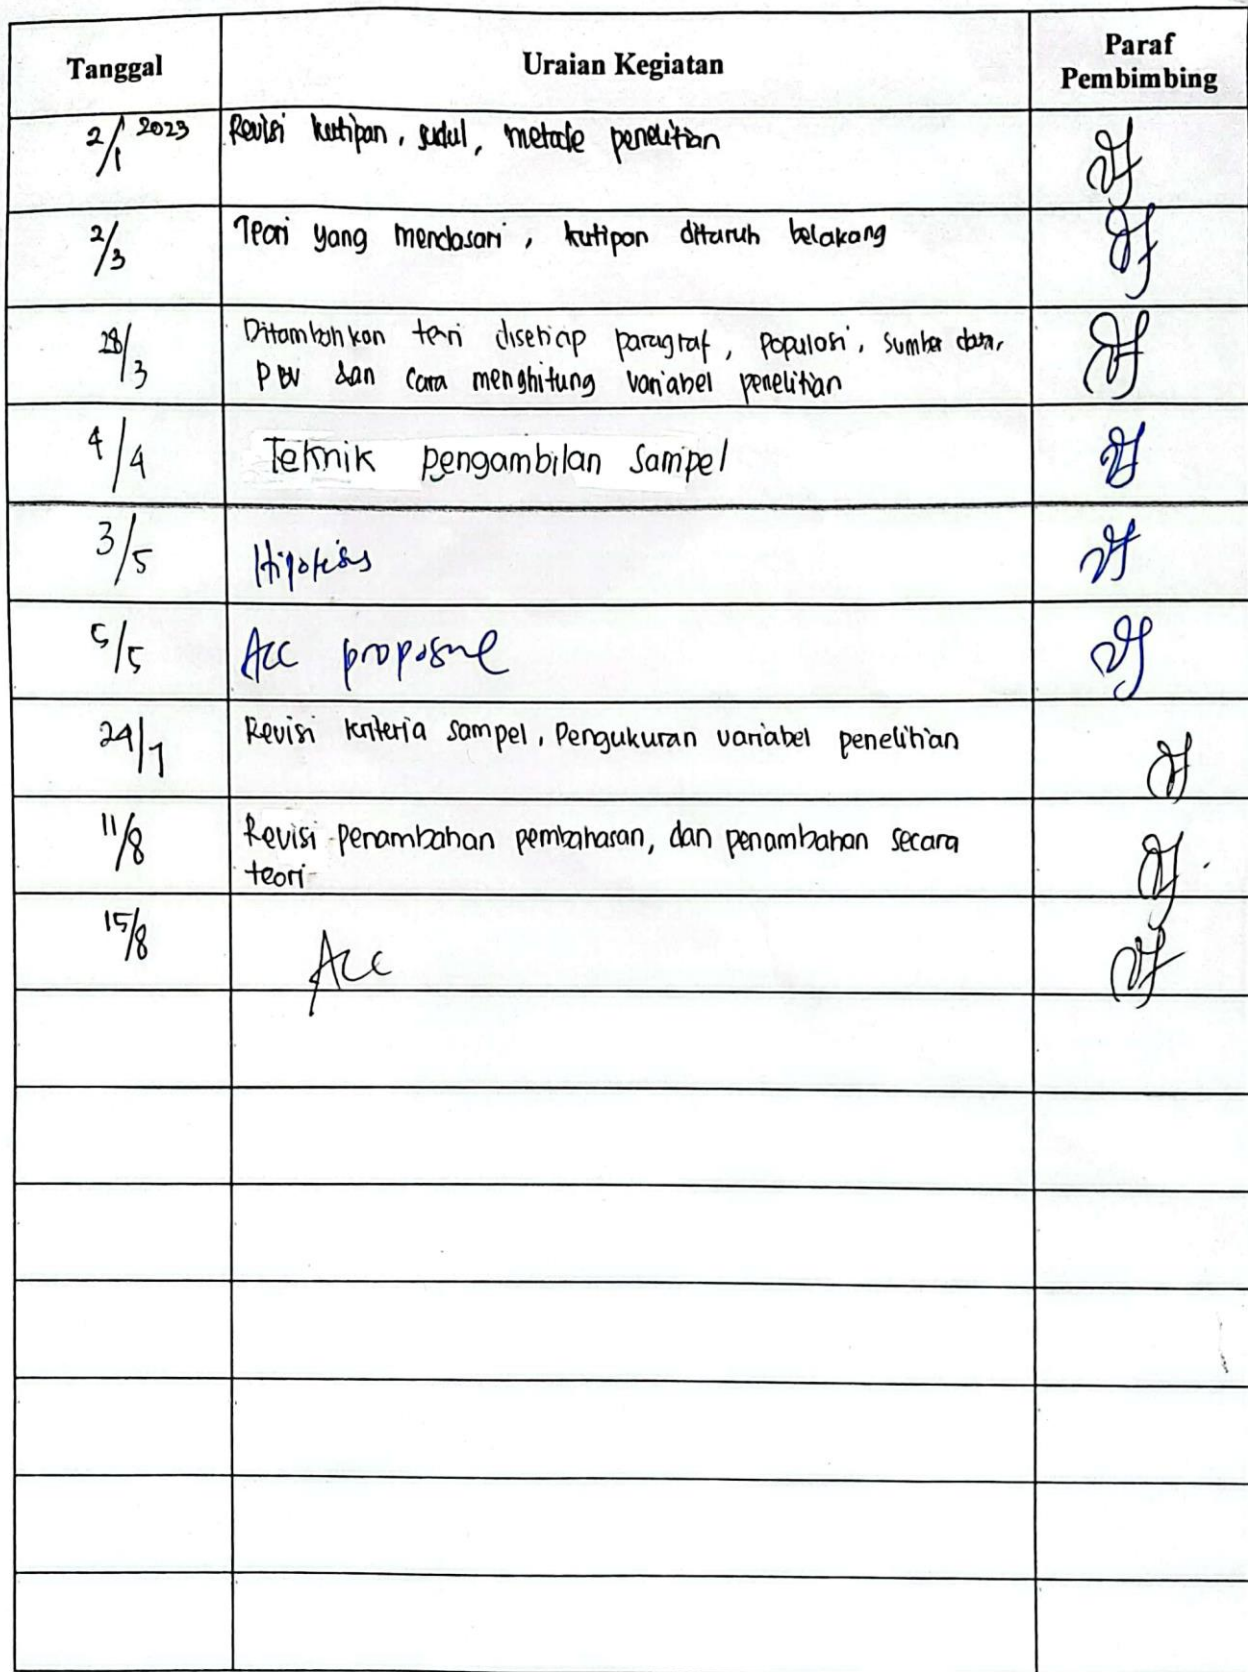 Tanggal Uraian Kegiatan Paraf Pembimbing
2/1 2023 Revisi kutipan, judul, metode penelitian
2/3 Teori yang mendasari, kutipan ditaruh belakang
28/3 Ditambahkan teori disetiap paragraf, populasi, sumber data,
PBV dan cara menghitung variabel penelitian
4/4 Teknik pengambilan sampel
3/5 Hipotesis
5/5 Acc proposal
24/7 Revisi kriteria sampel, Pengukuran variabel penelitian
11/8 Revisi penambahan pembahasan, dan penambahan secara
teori
15/8 Acc